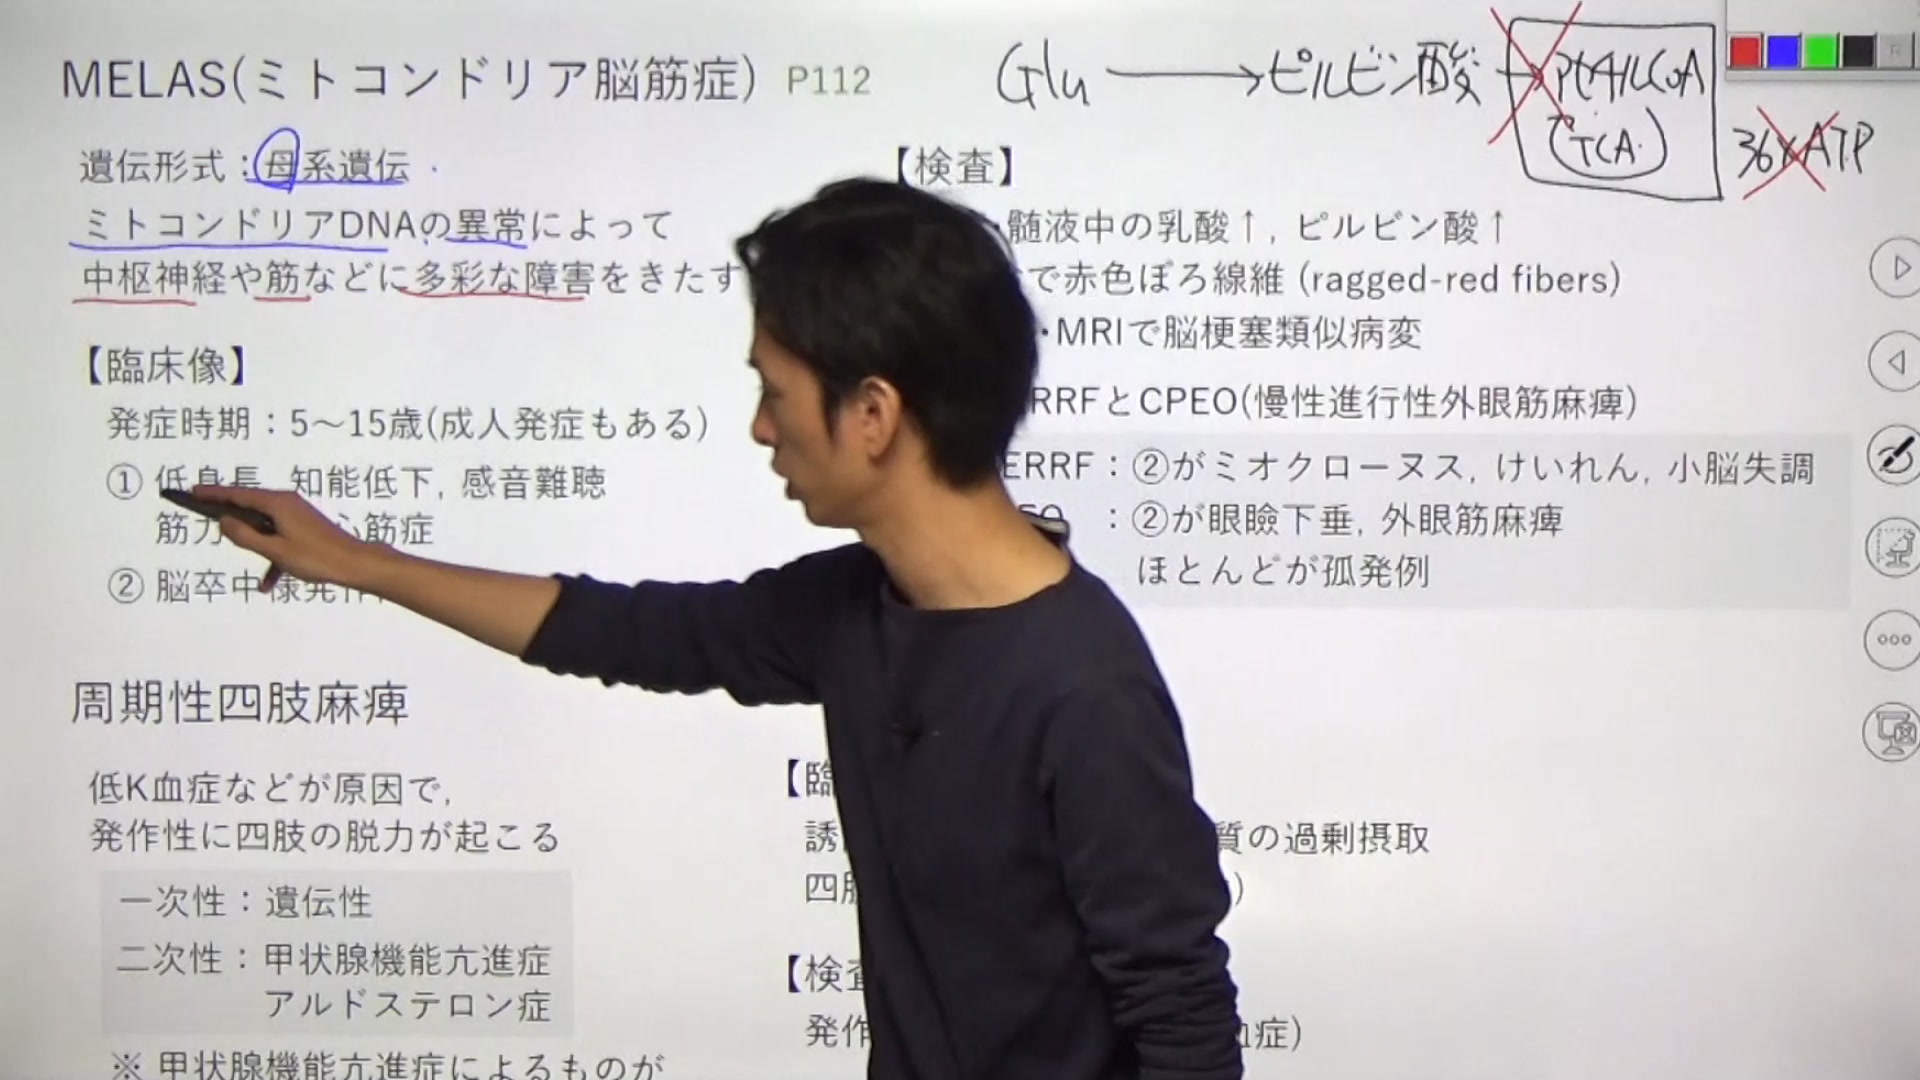 MELAS(ミトコンドリア脳筋症) P112
Glu → ピルビン酸 → アセチルCoA
TCA
36×ATP
遺伝形式：母系遺伝
ミトコンドリアDNAの異常によって
中枢神経や筋などに多彩な障害をきたす
【臨床像】
発症時期：5〜15歳(成人発症もある)
① 低身長, 知能低下, 感音難聴
筋力 心筋症
② 脳卒中様発作
【検査】
髄液中の乳酸↑, ピルビン酸↑
で赤色ぼろ線維 (ragged-red fibers)
・MRIで脳梗塞類似病変
RRFとCPEO(慢性進行性外眼筋麻痺)
ERRF：②がミオクローヌス, けいれん, 小脳失調
EO ：②が眼瞼下垂, 外眼筋麻痺
ほとんどが孤発例
周期性四肢麻痺
低K血症などが原因で,
発作性に四肢の脱力が起こる
一次性：遺伝性
二次性：甲状腺機能亢進症
アルドステロン症
※ 甲状腺機能亢進症によるものが
【臨
誘 質の過剰摂取
四肢 )
【検査
発作 血症)